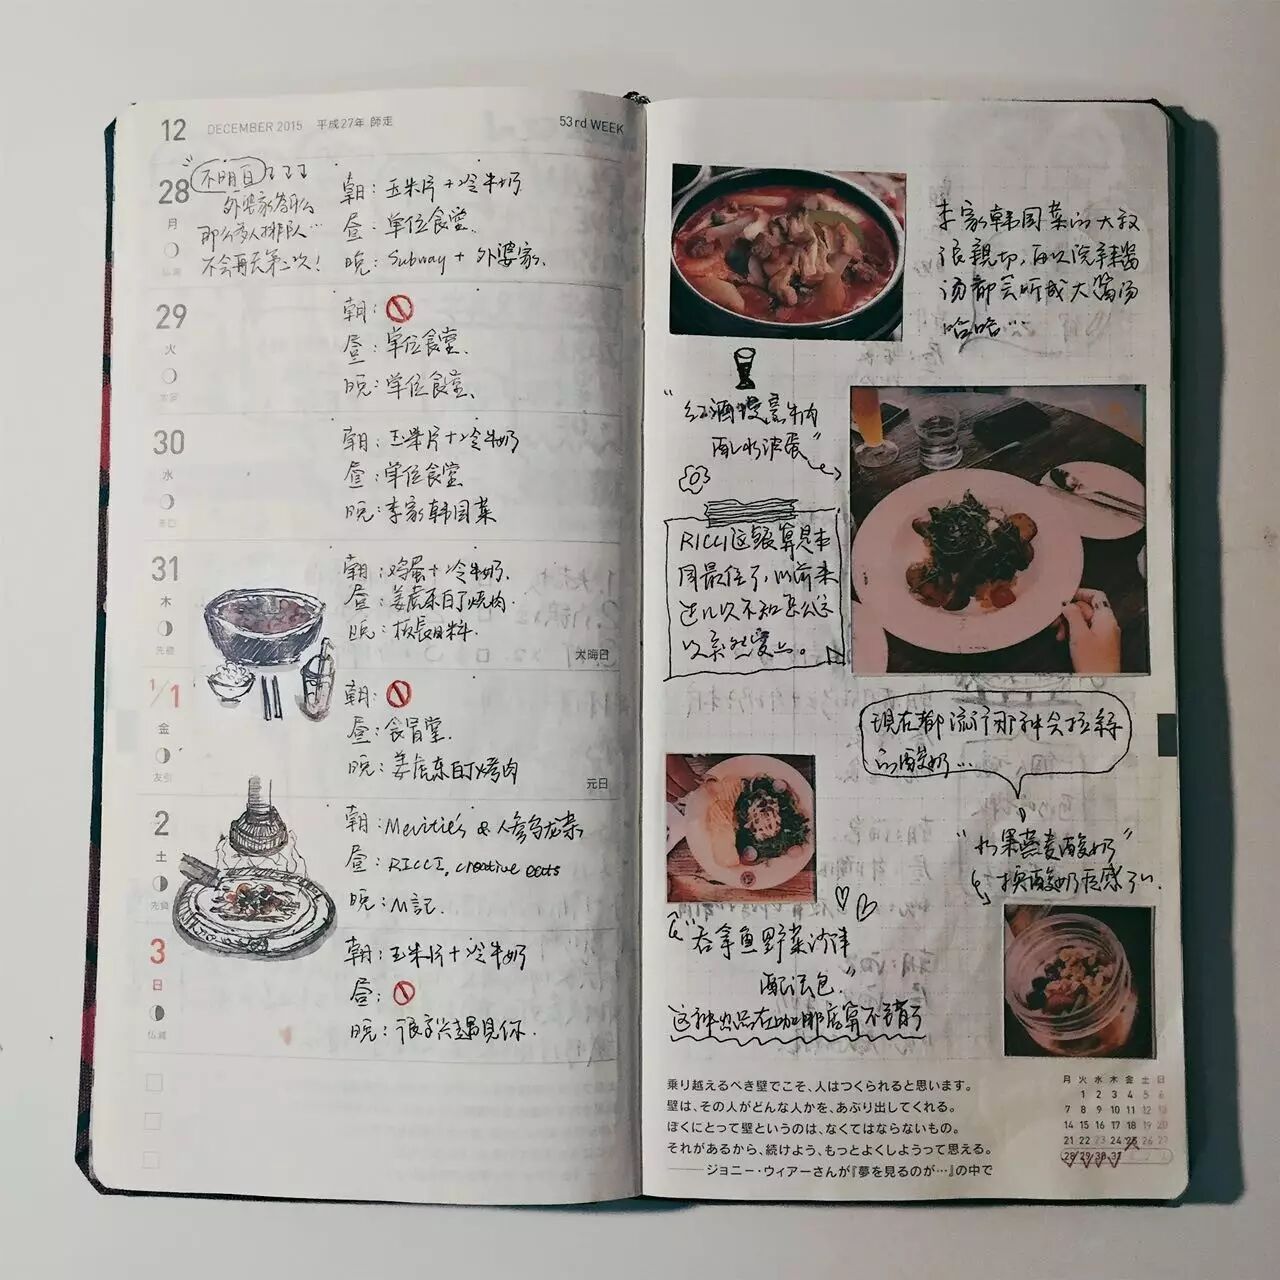 12 DECEMBER 2015 平成27年 師走 53rd WEEK
28
月
仏滅
不明白了了了
外婆家为什么
那么多人排队…
不会再去第二次!
朝:玉米片+冷牛奶
昼:单位食堂.
晚:Subway + 外婆家.
29
火
大安
朝:
昼:单位食堂.
晚:单位食堂.
30
水
赤口
朝:玉米片+冷牛奶
昼:单位食堂
晚:李家韩国菜
31
木
先勝
朝:鸡蛋+冷牛奶.
昼:姜虎东白丁烧肉.
晚:板长日料.
大晦日
1/1
金
友引
朝:
昼:食冒堂.
晚:姜虎东白丁烤肉
元日
2
土
先負
朝:Mcvitie's & 人参乌龙茶
昼:RICCI, creative eats
晚:M記.
3
日
仏滅
朝:玉米片+冷牛奶
昼:
晚:很高兴遇見你.
李家韩国菜的大叔
很親切,每次说辣酱
汤都会听成大酱汤
哈哈…
"红酒慢烹牛肉
配水波蛋"
RICCI这餐算是本
周最佳了,以前来
过几次不知怎么这
次突然爱上。
现在都流行那种会拉絲
的酸奶…
"水果燕麦酸奶"
换酸奶后感了
"吞拿鱼野菜沙律
配法包."
这种出品在咖啡店算不错了
乗り越えるべき壁でこそ、人はつくられると思います。
壁は、その人がどんな人かを、あぶり出してくれる。
ぼくにとって壁というのは、なくてはならないもの。
それがあるから、続けよう、もっとよくしようって思える。
——ジョニー・ウィアーさんが『夢を見るのが…』の中で
月 火 水 木 金 土 日
1 2 3 4 5 6
7 8 9 10 11 12 13
14 15 16 17 18 19 20
21 22 23 24 25 26 27
28 29 30 31 1 2 3